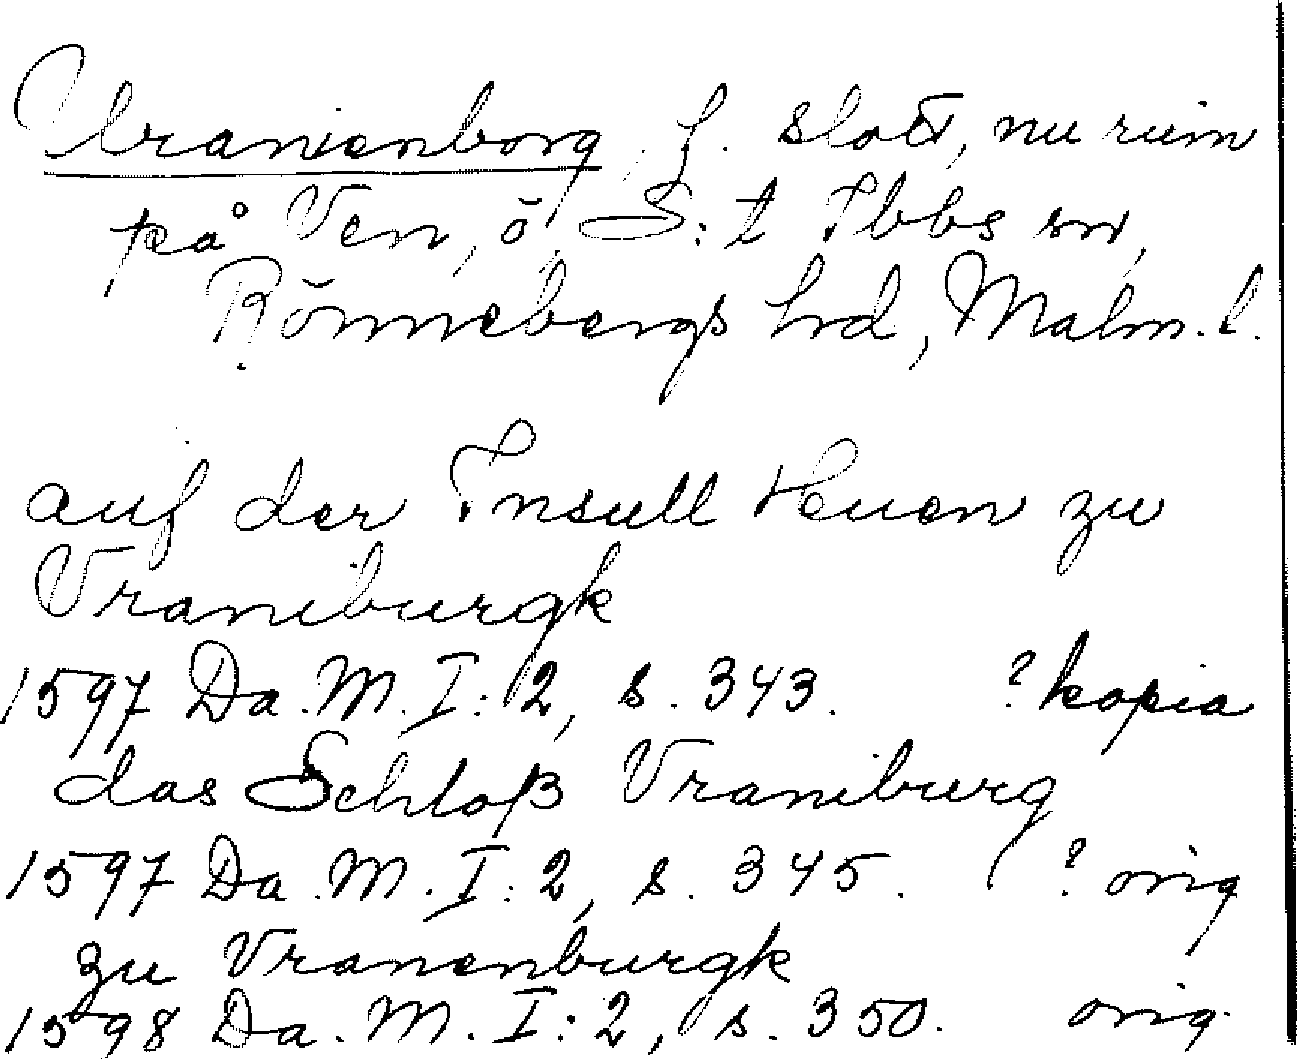 Uranienborg, f. slott, nu ruin
på Ven, ö, S:t Ibbs sn,
Rönnebergs hd, Malm. l.
auf der Insull Huen zu
Vraniburgk
1597 Da. M. I: 2, s. 343. ? kopia
das Schloß Vraniburg
1597 Da. M. I: 2, s. 345. ? orig
zu Vranenburgk
1598 Da. M. I: 2, s. 350. orig.